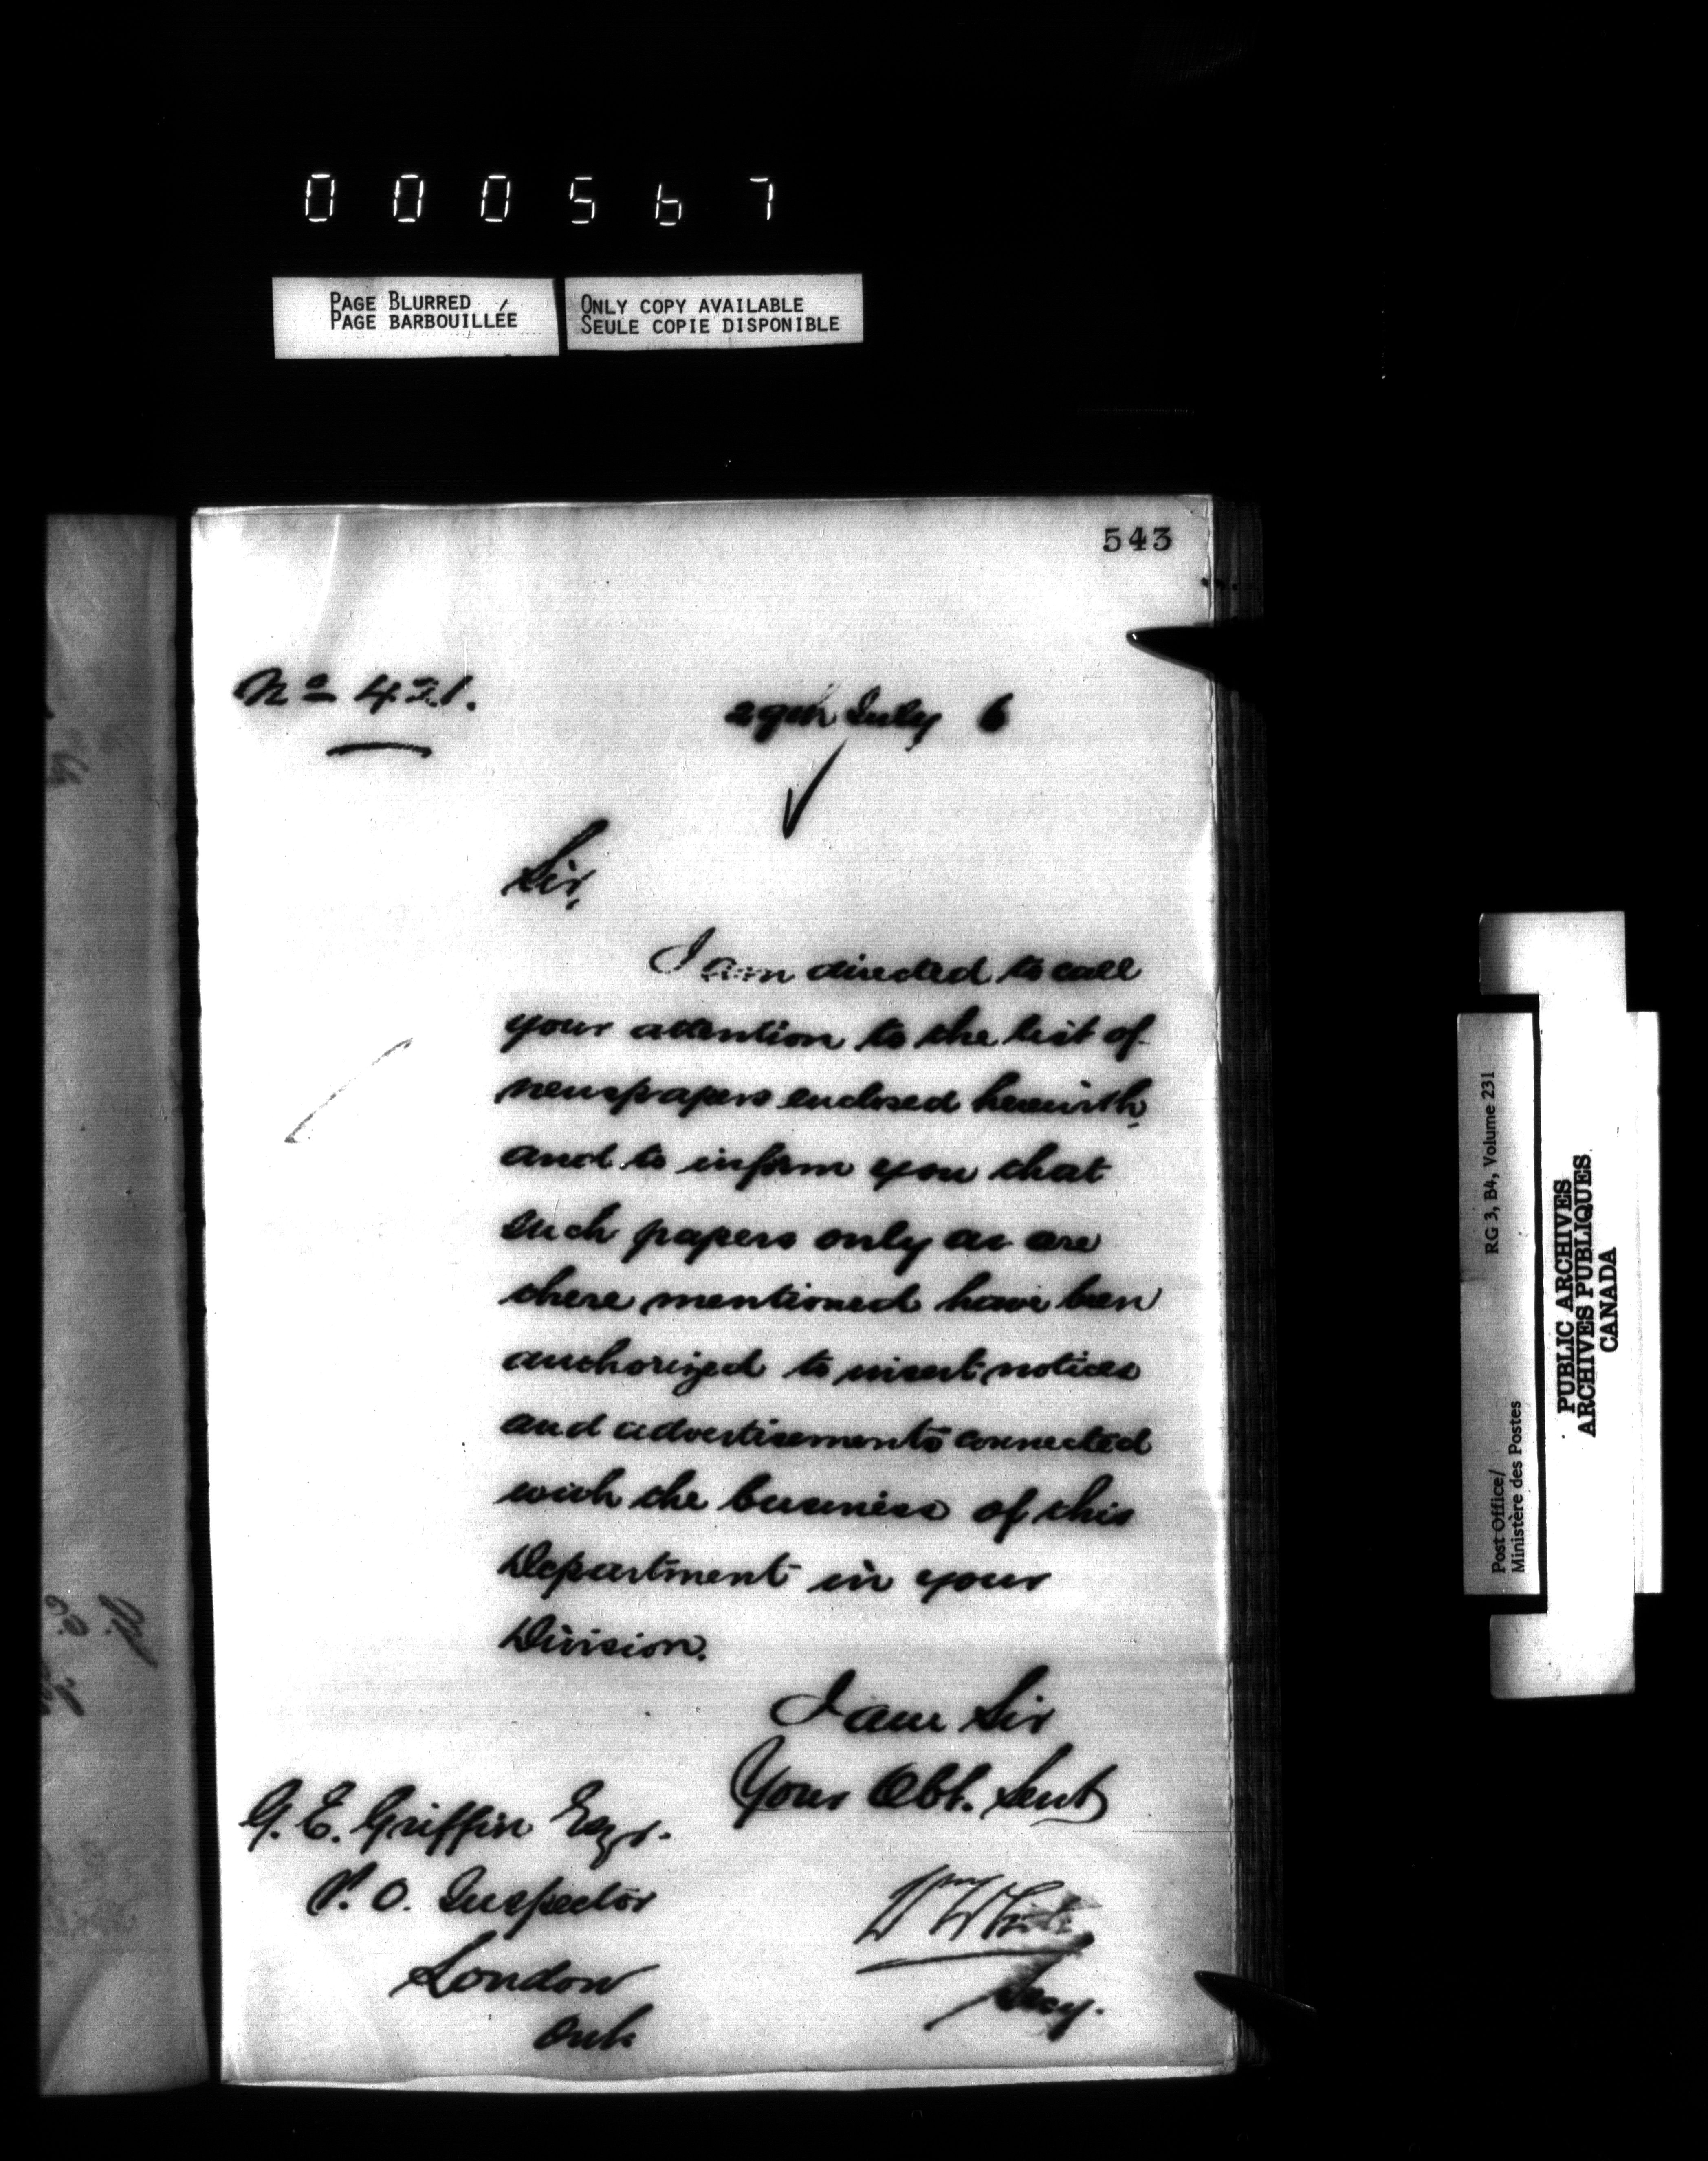 000567
PAGE BLURRED
PAGE BARBOUILLÉE
ONLY COPY AVAILABLE
SEULE COPIE DISPONIBLE
543
No 421.
29th July 6
Sir,
I am directed to call
your attention to the list of
newspapers enclosed herewith,
and to inform you that
such papers only as are
there mentioned have been
authorized to insert notices
and advertisements connected
with the business of this
Department in your
Division.
I am Sir
Your Obt. Servt
G. E. Griffin Esqr.
P. O. Inspector
London
Ont.
Wm White
Secy.
Post Office/
Ministère des Postes
RG 3, B4, Volume 231
PUBLIC ARCHIVES
ARCHIVES PUBLIQUES
CANADA